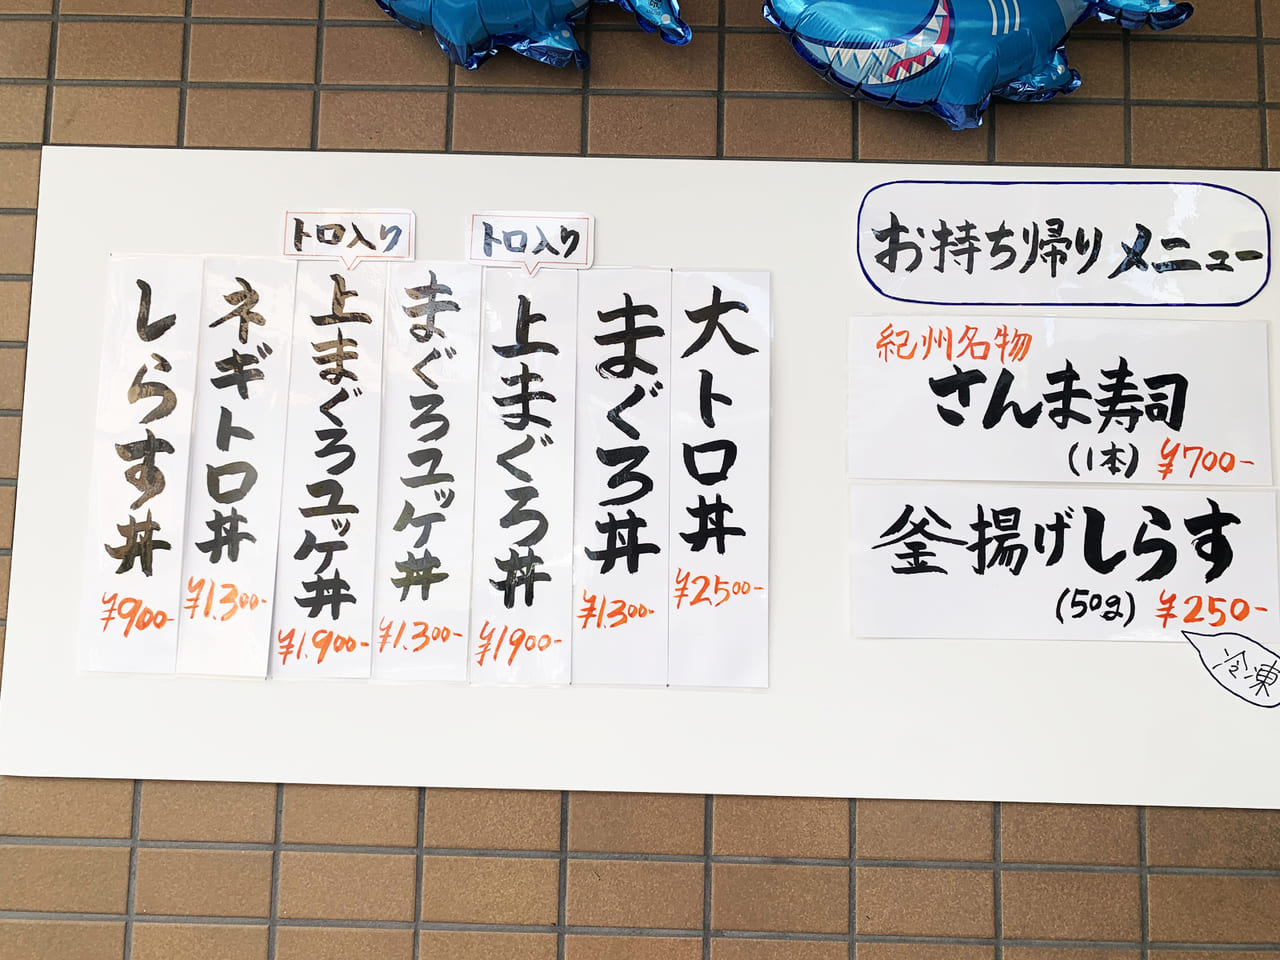 お持ち帰りメニュー
紀州名物
さんま寿司
(1本) ¥700-
釜揚げしらす
(50g) ¥250-
冷凍
大トロ丼
¥2500-
まぐろ丼
¥1.300-
トロ入り
上まぐろ丼
¥1900-
まぐろユッケ丼
¥1.300-
トロ入り
上まぐろユッケ丼
¥1.900-
ネギトロ丼
¥1.300-
しらす丼
¥900-